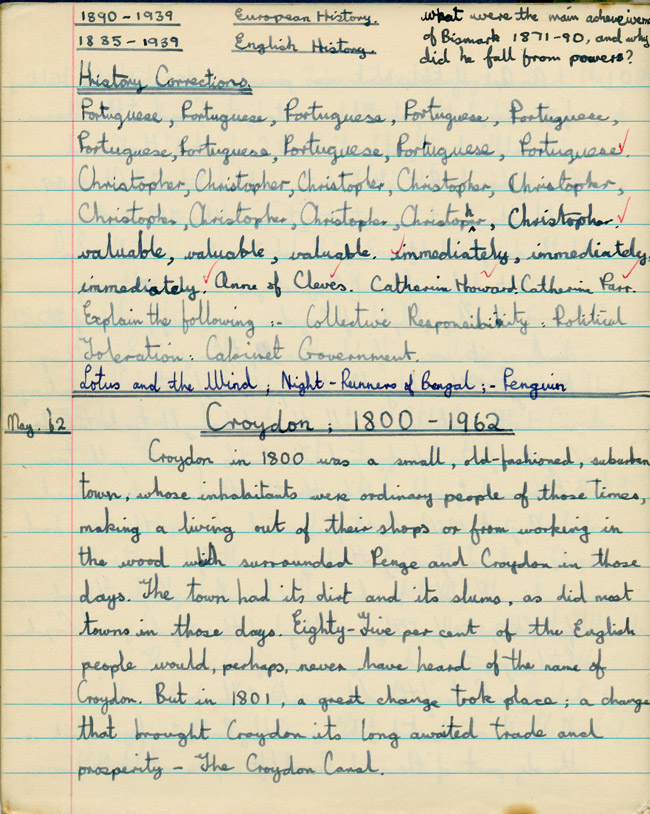 1890 - 1939 European History.
1835 - 1939 English History.
what were the main acheivements
of Bismark 1871-90, and why
did he fall from power?
History Corrections
Portuguese, Portuguese, Portuguese, Portuguese, Portuguese,
Portuguese, Portuguese, Portuguese, Portuguese, Portuguese.
Christopher, Christopher, Christopher, Christopher, Christopher,
Christopher, Christopher, Christopher, Christopher, Christopher.
valuable, valuable, valuable. immediately, immediately,
immediately. Anne of Cleves. Catherine Howard. Catherine Parr.
Explain the following :- Collective Responsibility : Political
Toleration : Cabinet Government.
Lotus and the Wind ; Night-Runners of Bengal ; - Penguin
May. '62
Croydon ; 1800 - 1962
Croydon in 1800 was a small, old-fashioned, suburban
town, whose inhabitants were ordinary people of those times,
making a living out of their shops or from working in
the wood which surrounded Penge and Croydon in those
days. The town had its dirt and its slums, as did most
towns in those days. Eighty-Five per cent of the English
people would, perhaps, never have heard of the name of
Croydon. But in 1801, a great change took place ; a change
that brought Croydon its long awaited trade and
prosperity - The Croydon Canal.